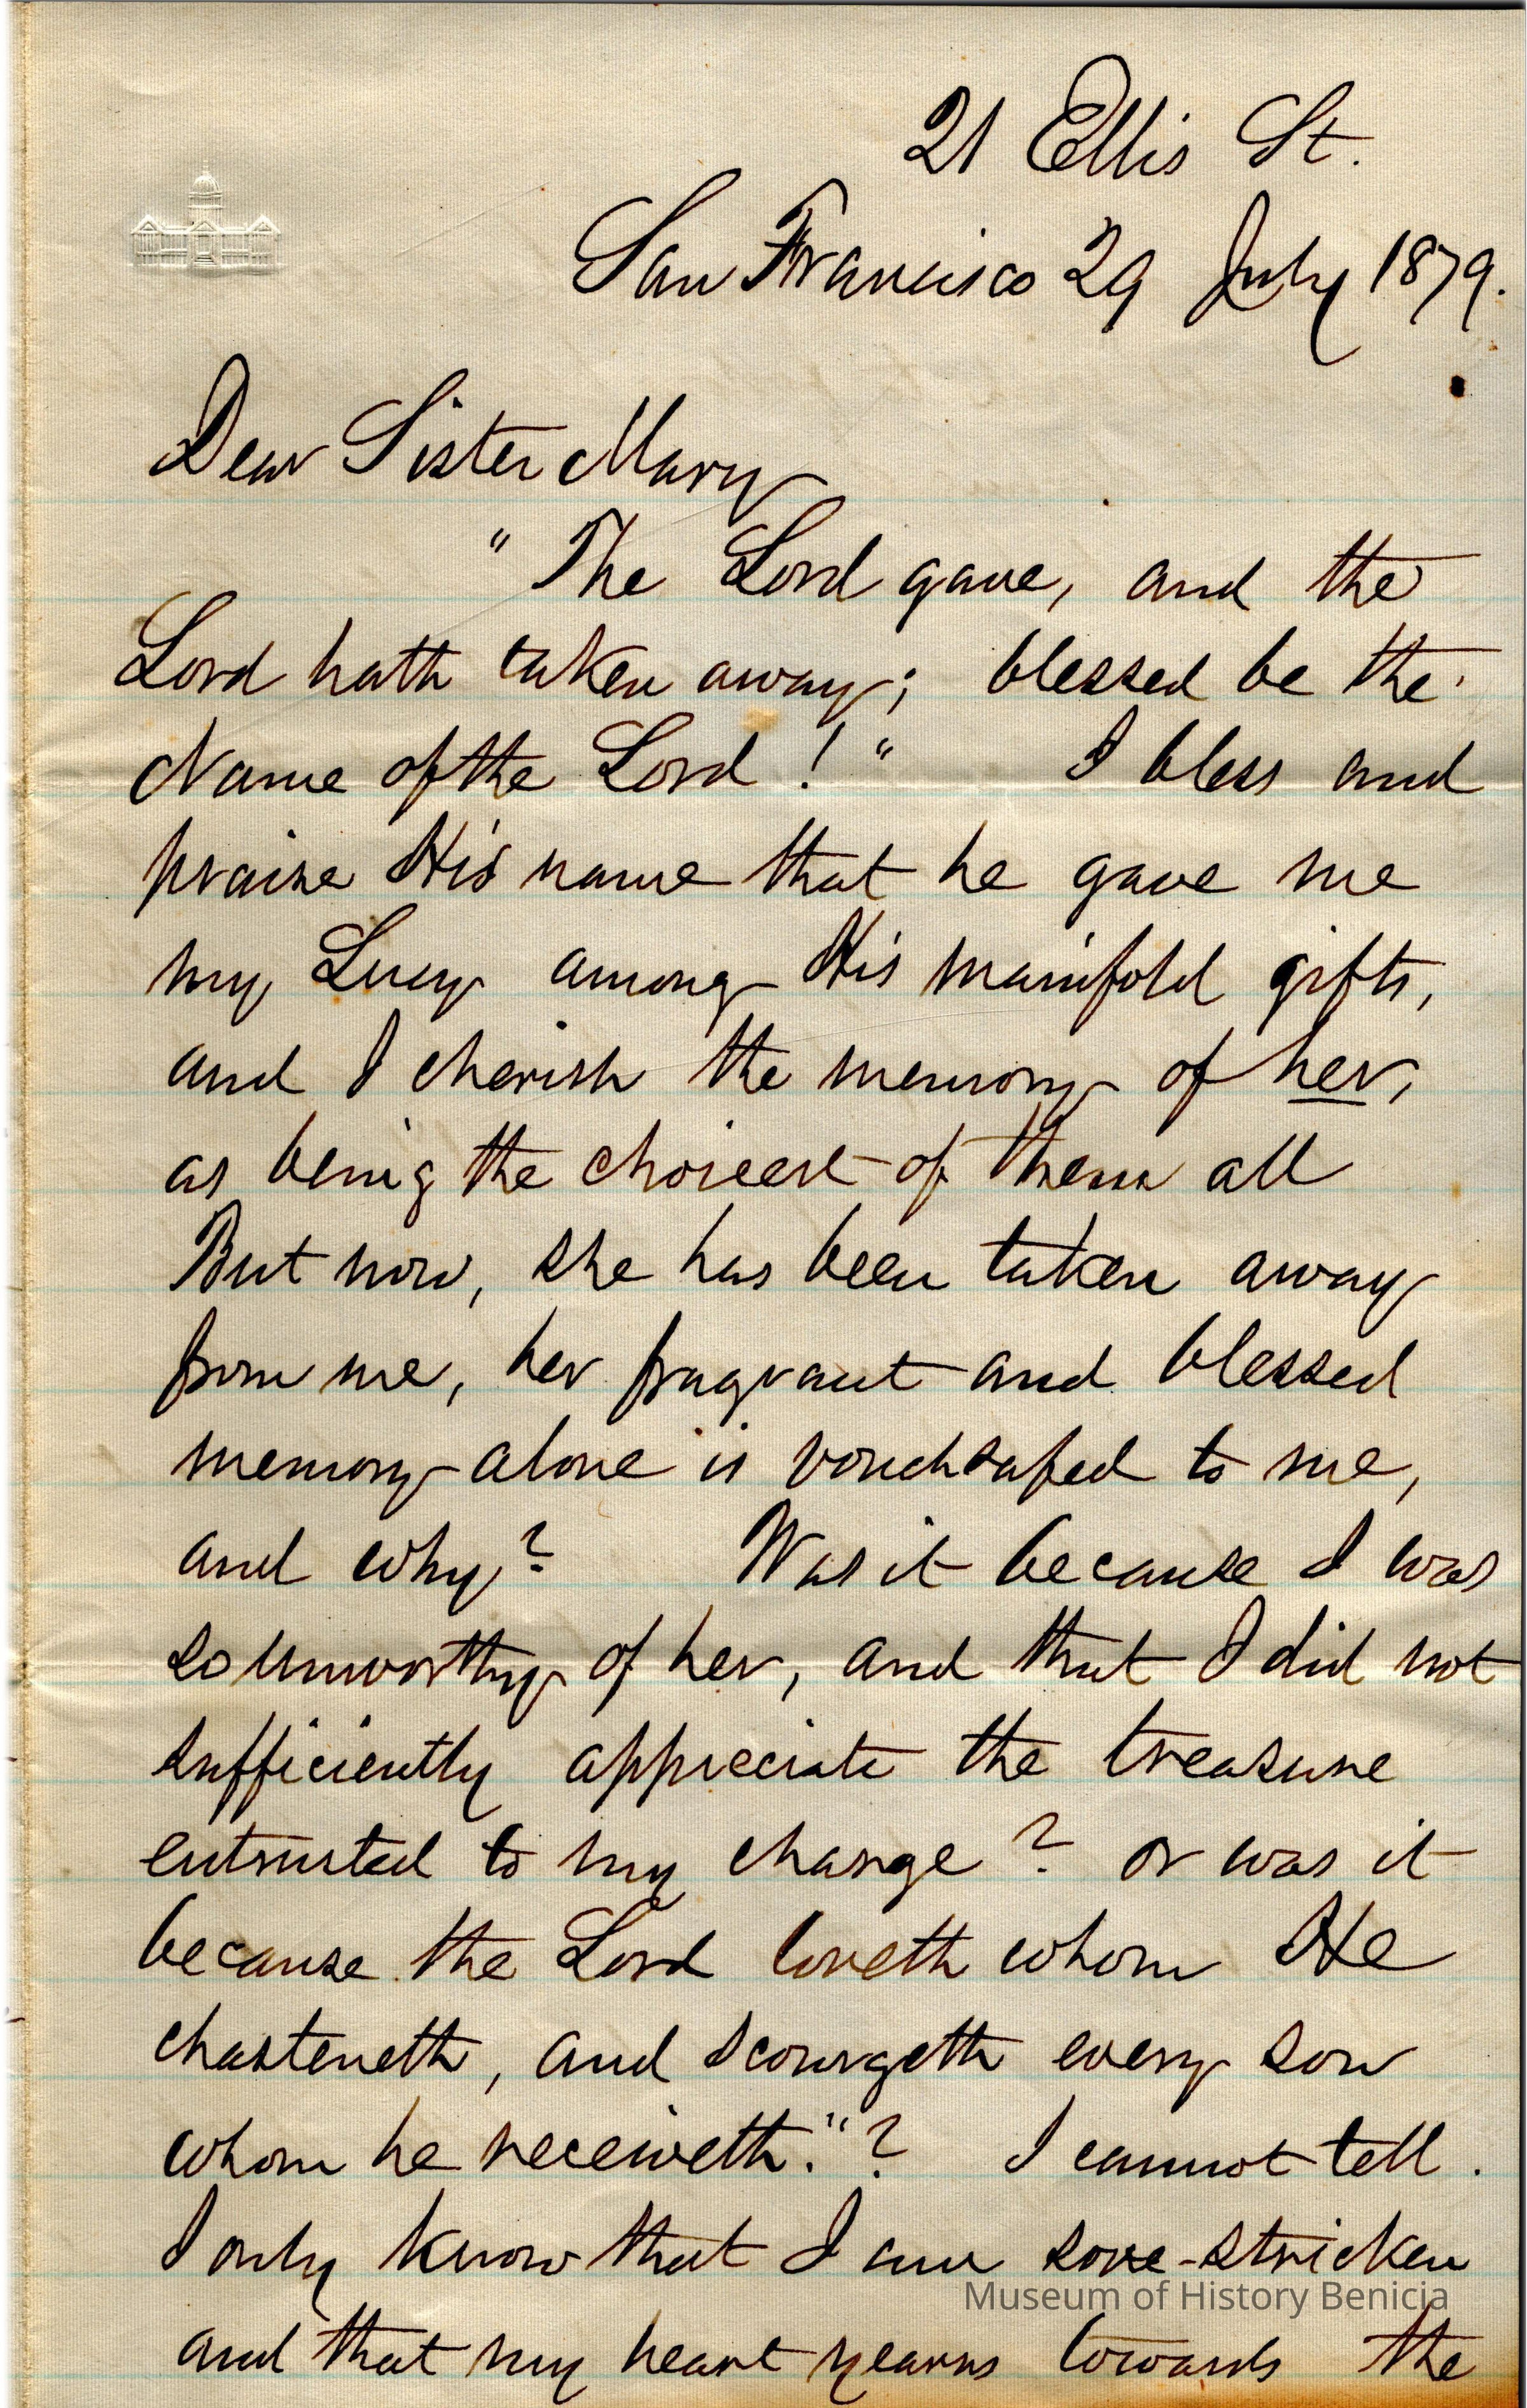 21 Ellis St.
San Francisco 29 July 1879.
Dear Sister Mary
"The Lord gave, and the
Lord hath taken away; blessed be the
Name of the Lord!" I bless and
praise His name that he gave me
my Lucy among His manifold gifts,
and I cherish the memory of her,
as being the choicest of them all
But now, she has been taken away
from me, her fragrant and blessed
memory alone is vouchsafed to me,
and why? Was it because I was
so unworthy of her, and that I did not
sufficiently appreciate the treasure
entrusted to my charge? or was it
because the Lord loveth whom He
chasteneth, and scourgeth every son
whom he receiveth."? I cannot tell.
I only know that I am sore-stricken
and that my heart yearns towards the
Museum of History Benicia